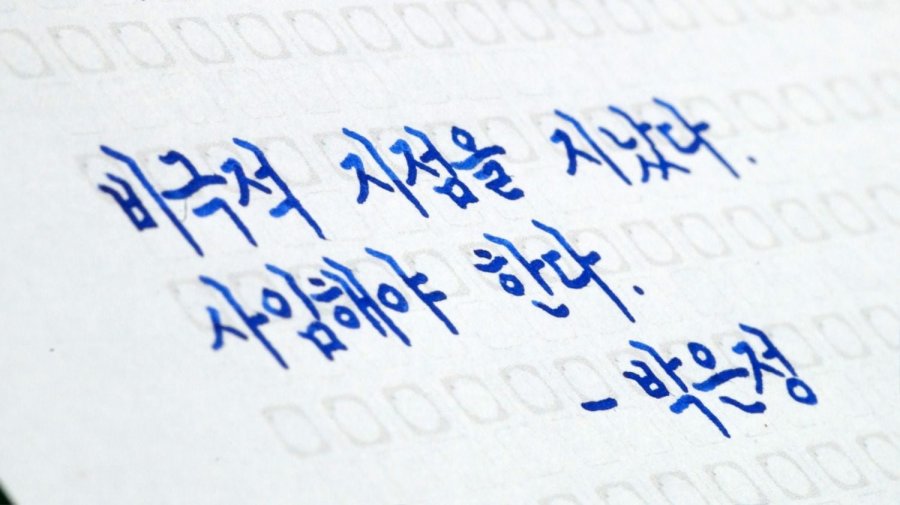 비극적 지점을 지났다.
사임해야 한다.
- 박은정